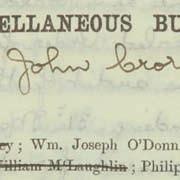 ELLANEOUS BU
John Cro
ey; Wm. Joseph O'Donn
William McLaughlin; Philip